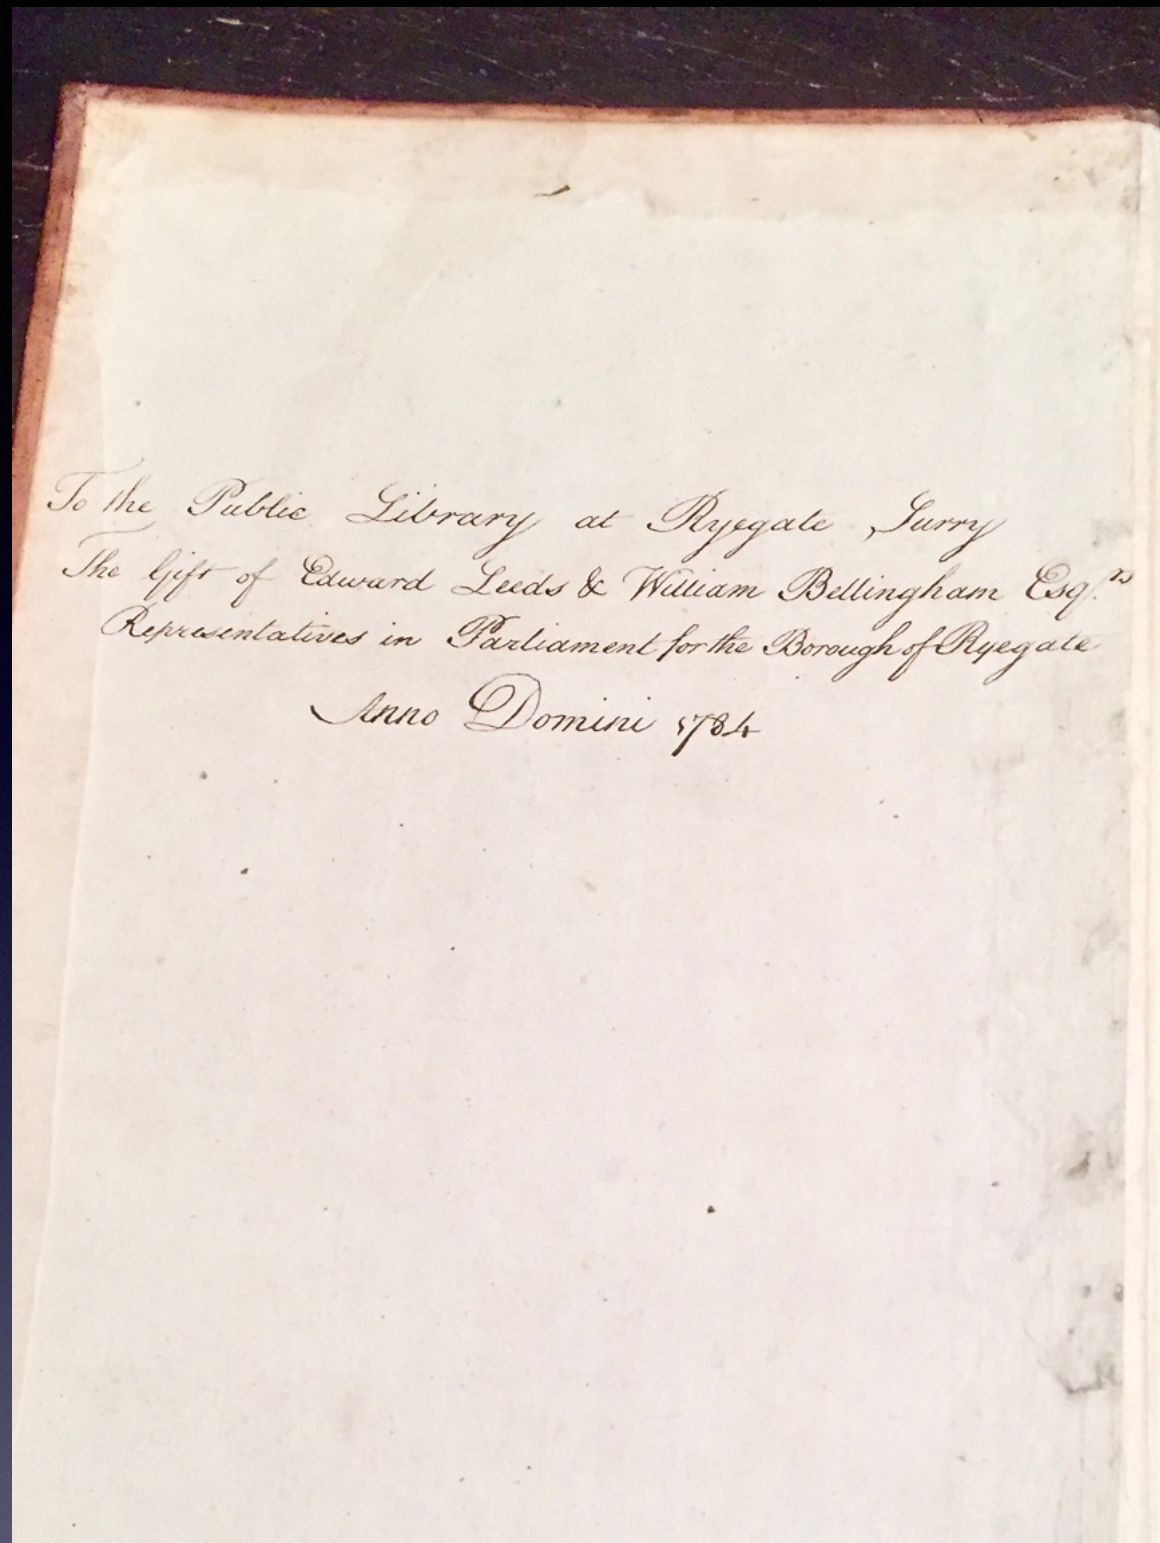 To the Public Library at Ryegate, Surry
The Gift of Edward Leeds & William Bellingham Esq.rs
Representatives in Parliament for the Borough of Ryegate
Anno Domini 1784